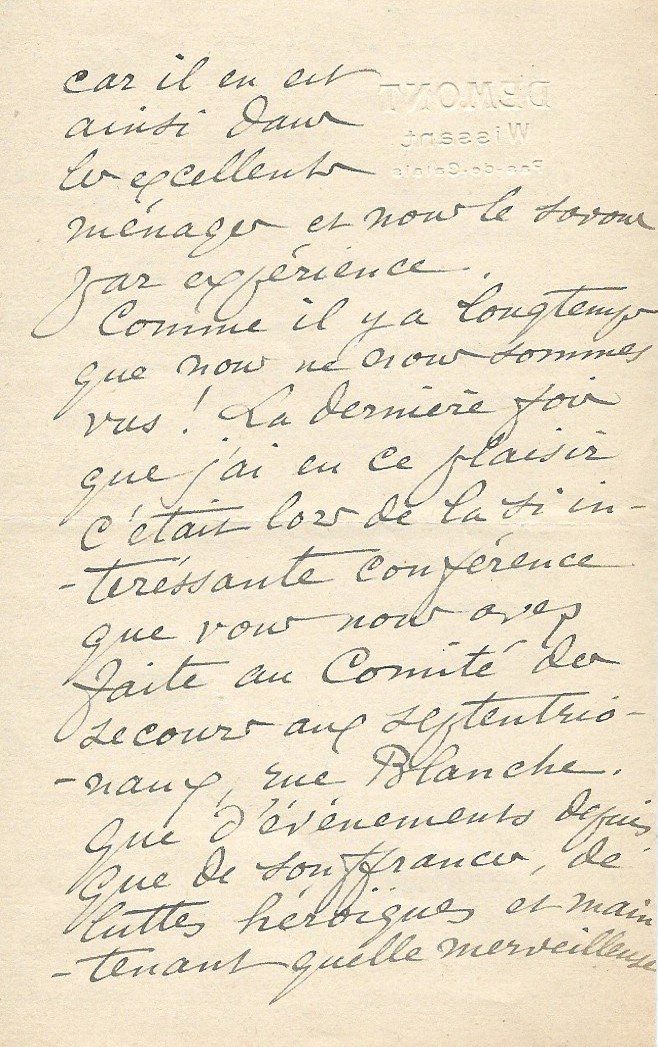 DEMONT
Wissant
Pas-de-Calais
car il en est
ainsi dans
les excellents
ménages et nous le savons
par expérience.
Comme il y a longtemps
que nous ne nous sommes
vus ! La dernière fois
que j'ai eu ce plaisir
c'était lors de la si in-
-téréssante conférence
que vous nous avez
faite au Comité des
secours aux septentrio-
-naux, rue Blanche.
Que d'événements depuis,
que de souffrances, de
luttes héroïques et main
-tenant quelle merveilleuse